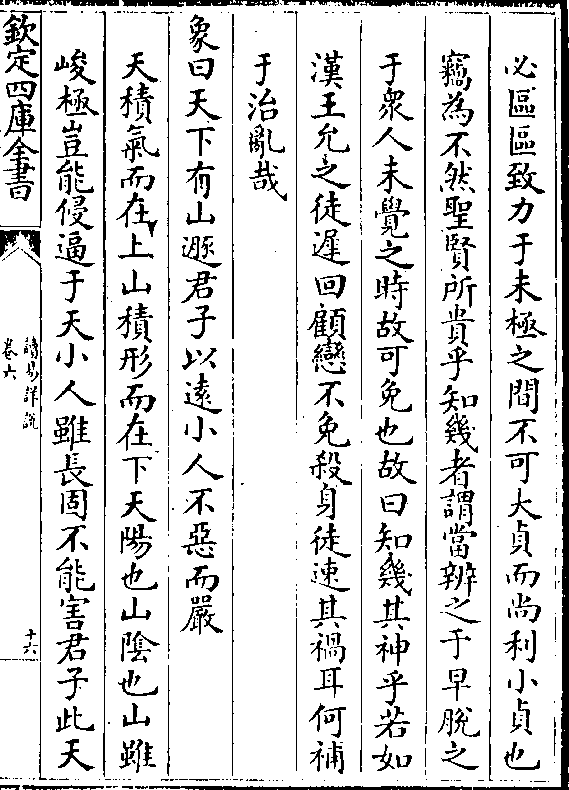 必區區致力于未極之間不可大貞而尚利小貞也
竊為不然聖賢所貴乎知幾者謂當辨之于早脫之
于衆人未覺之時故可免也故曰知幾其神乎若如
漢王允之徒遲回顧戀不免殺身徒速其禍耳何補
于治亂哉
象曰天下有山遯君子以遠小人不惡而嚴
天積氣而在上山積形而在下天陽也山陰也山雖
峻極豈能侵逼于天小人雖長固不能害君子此天
欽定四庫全書
讀易詳說
卷六
十六